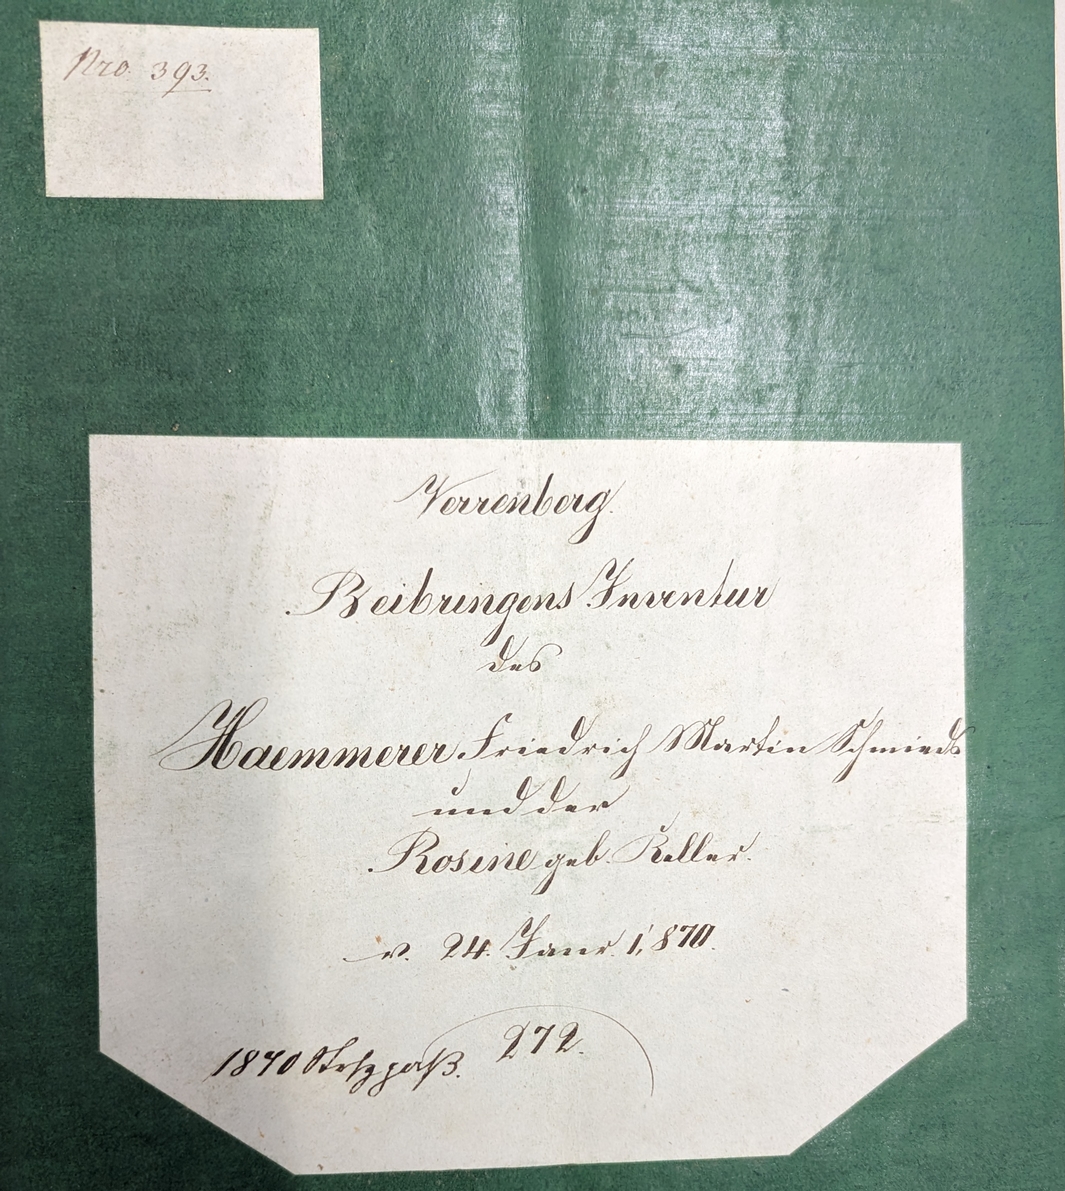 Nro. 393.
Verrenberg.
Beibringens Inventur
des
Haemmerer Friedrich Martin Schmieds
und der
Rosine geb. Keller.
v. 24. Janr. 1,870.
272.
1870